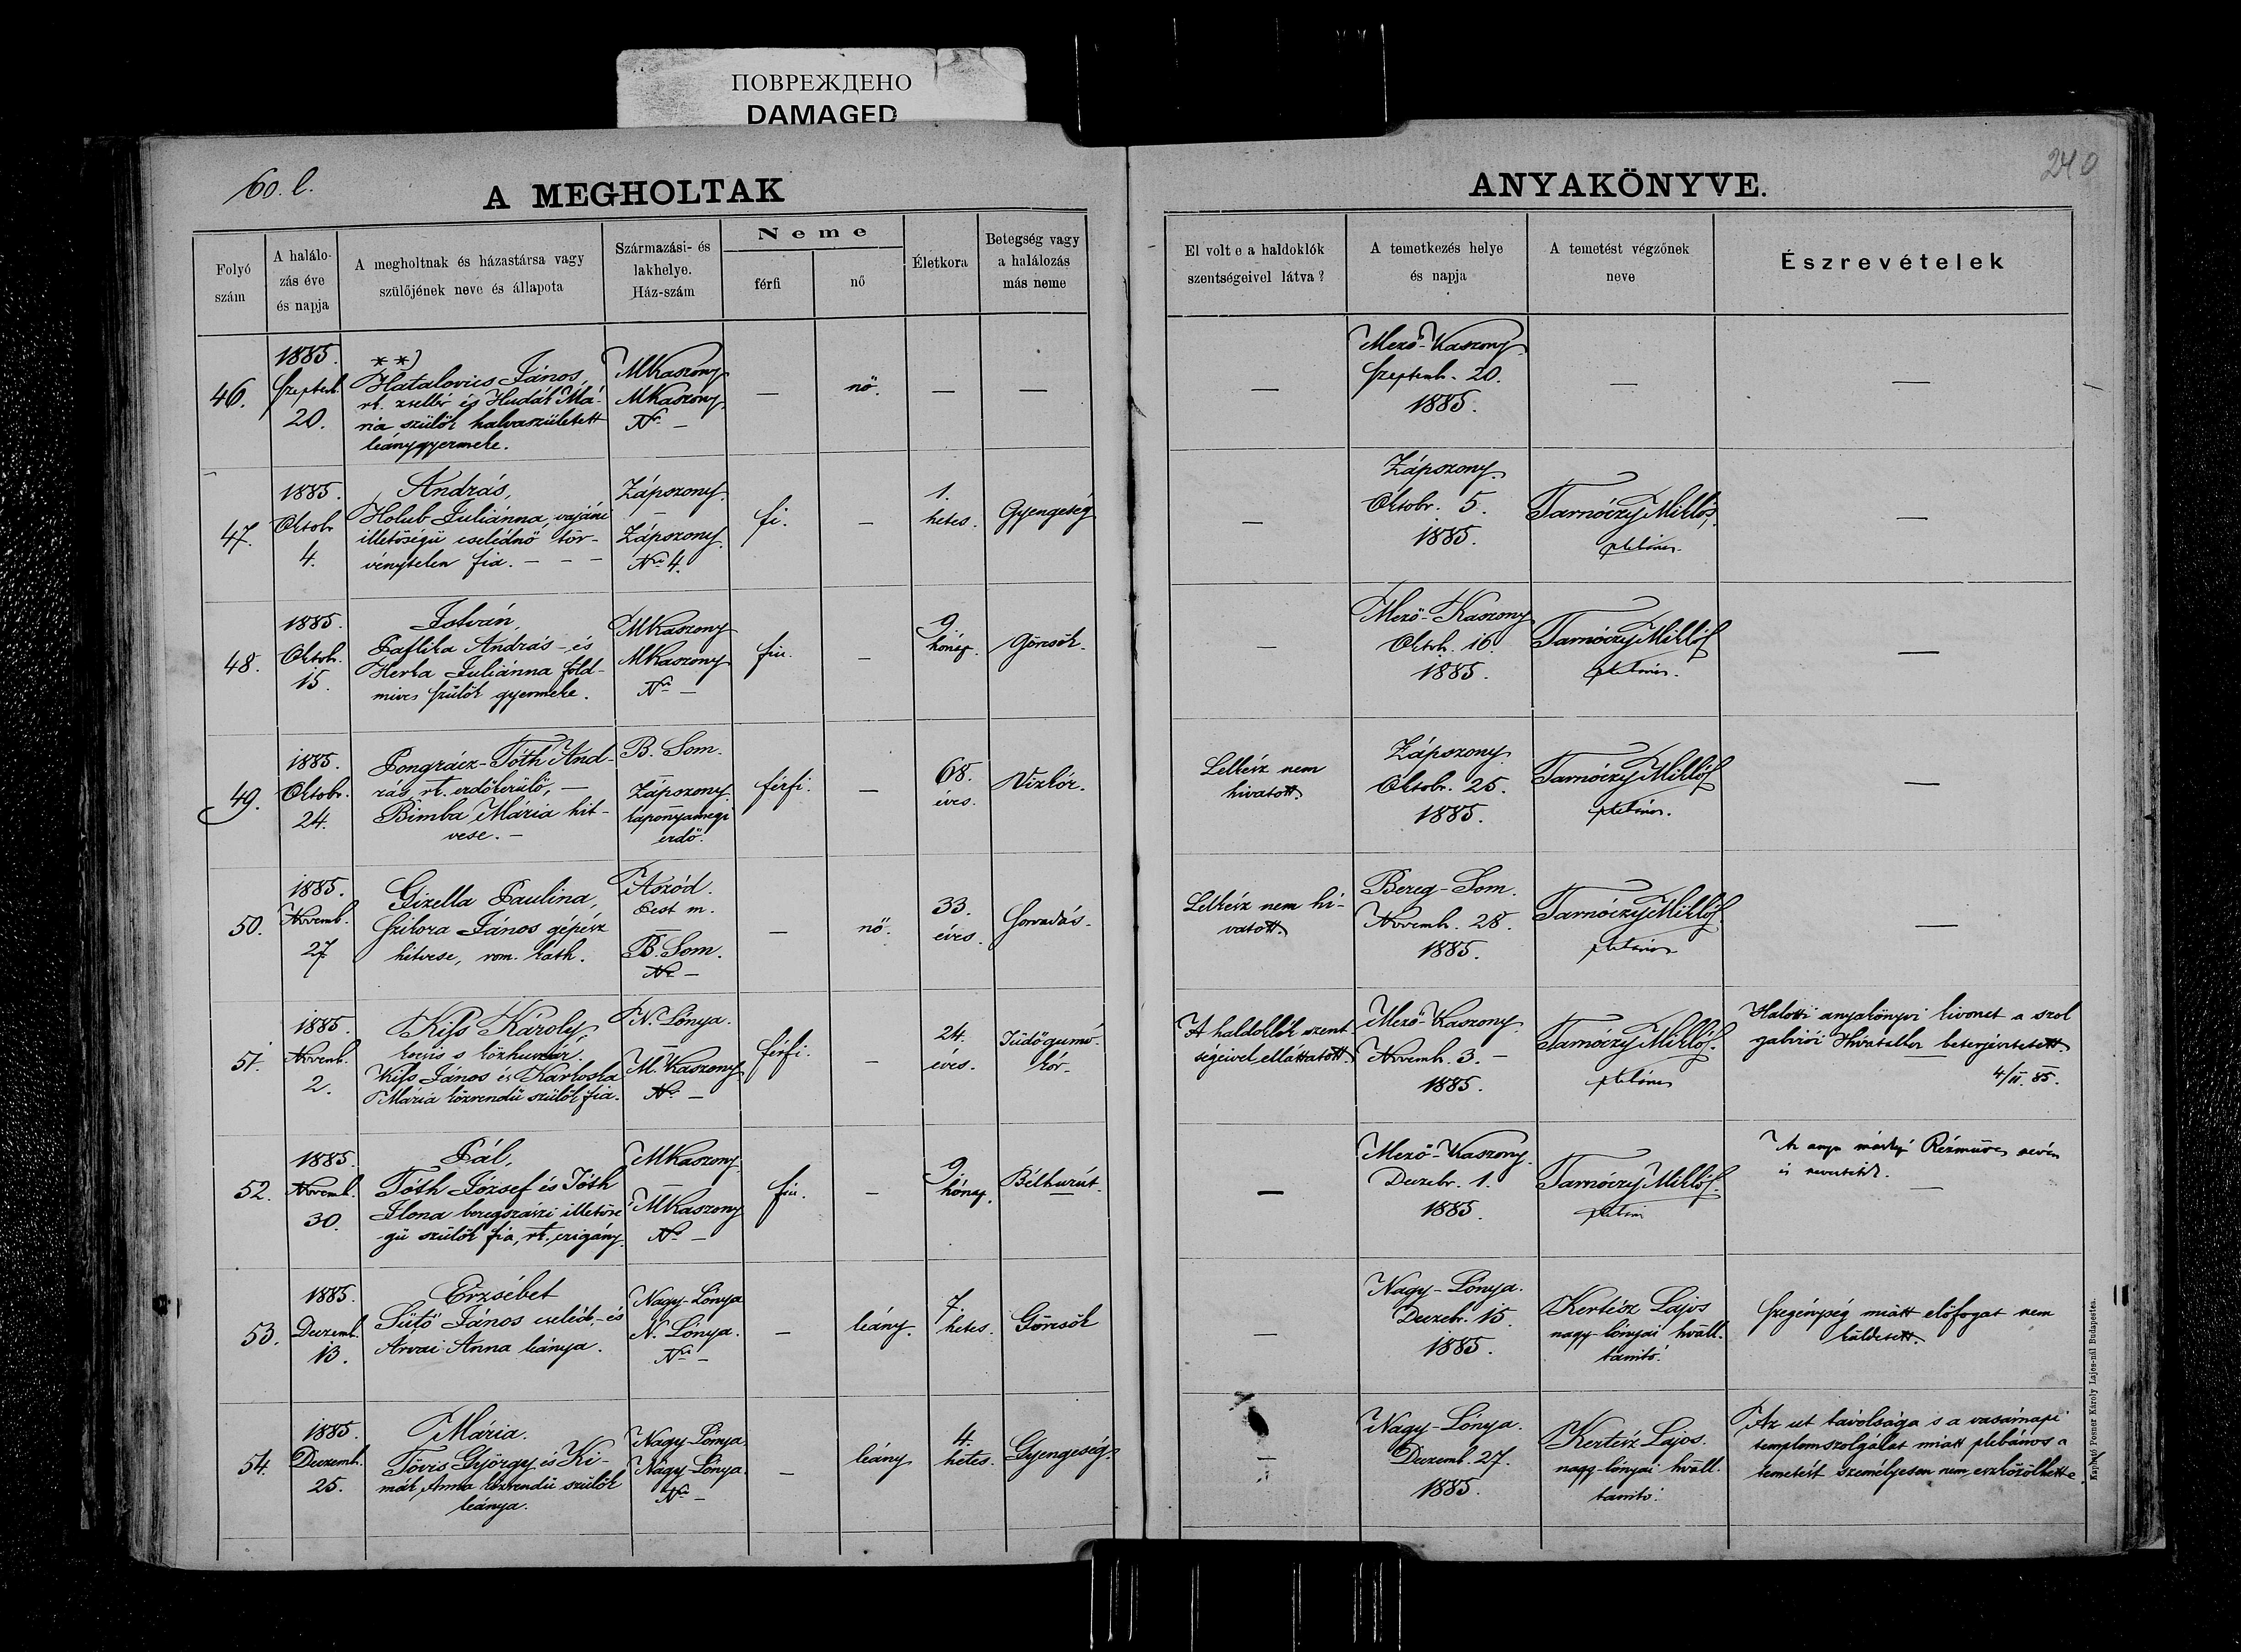 ПОВРЕЖДЕНО
DAMAGED
60. l.
240
A MEGHOLTAK
ANYAKÖNYVE.
Folyó
szám
A halálo-
zás éve
és napja
A megholtnak és házastársa vagy
szülőjének neve és állapota
Származási- és
lakhelye.
Ház-szám
Neme
férfi
nő
Életkora
Betegség vagy
a halálozás
más neme
El volt e a haldoklók
szentségeivel látva?
A temetkezés helye
és napja
A temetést végzőnek
neve
Észrevételek
46.
1885.
Septemb.
20.
**)
Hatalovics János
rk. zsellér és Hudák Má-
ria szülők halvaszületett
leánygyermeke.
MKaszony
MKaszony
No —
—
nő.
—
—
—
Mező-Kaszony
Septemb. 20.
1885.
—
—
47.
1885.
Oktob
4.
András,
Holub Juliánna, vajáni
illetőségü cselédnő tör-
vénytelen fia. — — —
Zápszony.
—
Zápszony.
No 4.
fi.
—
1.
hetes.
Gyengeség
—
Zápszony.
Oktobr. 5.
1885.
Tarnóczy Miklós,
plébános.
—
48.
1885.
Oktob.
15.
István,
Paflika András - és
Herka Juliánna föld-
mives szülők gyermeke.
MKaszony
MKaszony
No —
fiu.
—
9.
hónap.
Görcsök.
—
Mező-Kaszony
Oktob. 16.
1885.
Tarnóczy Miklós
plébános.
—
49.
1885.
Oktobr.
24.
Pongrácz-Tóth And-
rás, rk. erdőkerülő, —
Bimba Mária hit-
vese. —
B. Som.
—
Zápszony.
kaponyamegi
erdő.
férfi.
—
68.
éves.
Vizkór.
Lelkész nem
hivatott.
Zápszony.
Oktobr. 25.
1885.
Tarnóczy Miklós
plébános.
—
50.
1885.
Novemb.
27
Gizella Paulina,
Szikora János gépész
hitvese, rom. kath.
Aszód.
Pest m.
—
B. Som.
No —
—
nő.
33.
éves.
Sorvadás.
Lelkész nem hi-
vatott.
Bereg-Som.
Novemb. 28.
1885.
Tarnóczy Miklós
plébános
—
51.
1885.
Novemb.
2.
Kiss Károly,
kocsis s közhuszár.
Kiss János és Karkoska
Mária közrendü szülők fia.
N. Lónya.
—
M. Kaszony
No —
férfi.
—
24.
éves.
Tüdőgumó-
kór.
A haldoklók szent-
ségeivel elláttatott.
Mező-Kaszony.
Novemb. 3. —
1885.
Tarnóczy Miklós.
plébános
Halotti anyakönyvi kivonat a szol
gabirói Hivatalhoz beterjesztetett.
4/II. 85.
52.
1885.
Novemb.
30.
Pál,
Tóth József és Tóth
Ilona beregszászi illetősé
gü szülők fia, rk. czigány.
MKaszony
—
MKaszony
No —
fiu.
—
9.
hónap.
Bélhurút.
—
Mező-Kaszony.
Dezebr. 1.
1885.
Tarnóczy Miklós.
Az anya másképp Rézmüves néven
is neveztetik.
—
53.
1885.
Dezemb.
13.
Erzsébet
Sütő János cseléd, - és
Árvai Anna leánya.
Nagy-Lónya
N. Lónya.
No —
—
leány.
7
hetes.
Görcsök
—
Nagy-Lónya.
Dezebr. 15.
1885.
Kertész Lajos
nagy-lónyai hváll.
tanitó.
Szegénység miatt előfogat nem
küldetett.
54.
1885.
Dezemb.
25.
Mária.
Tövis György és Ki-
mák Anna közrendü szülők
leánya.
Nagy-Lónya.
Nagy-Lónya.
No —
—
leány
4.
hetes.
Gyengeség.
—
Nagy-Lónya.
Dezemb. 27.
1885.
Kertész Lajos.
nagy-lónyai hváll.
tanitó.
Az ut távolsága s a vasárnapi
templomszolgálat miatt plébános a
temetést személyesen nem eszközölhette.
Kapható Posner Károly Lajos-nál Budapesten.